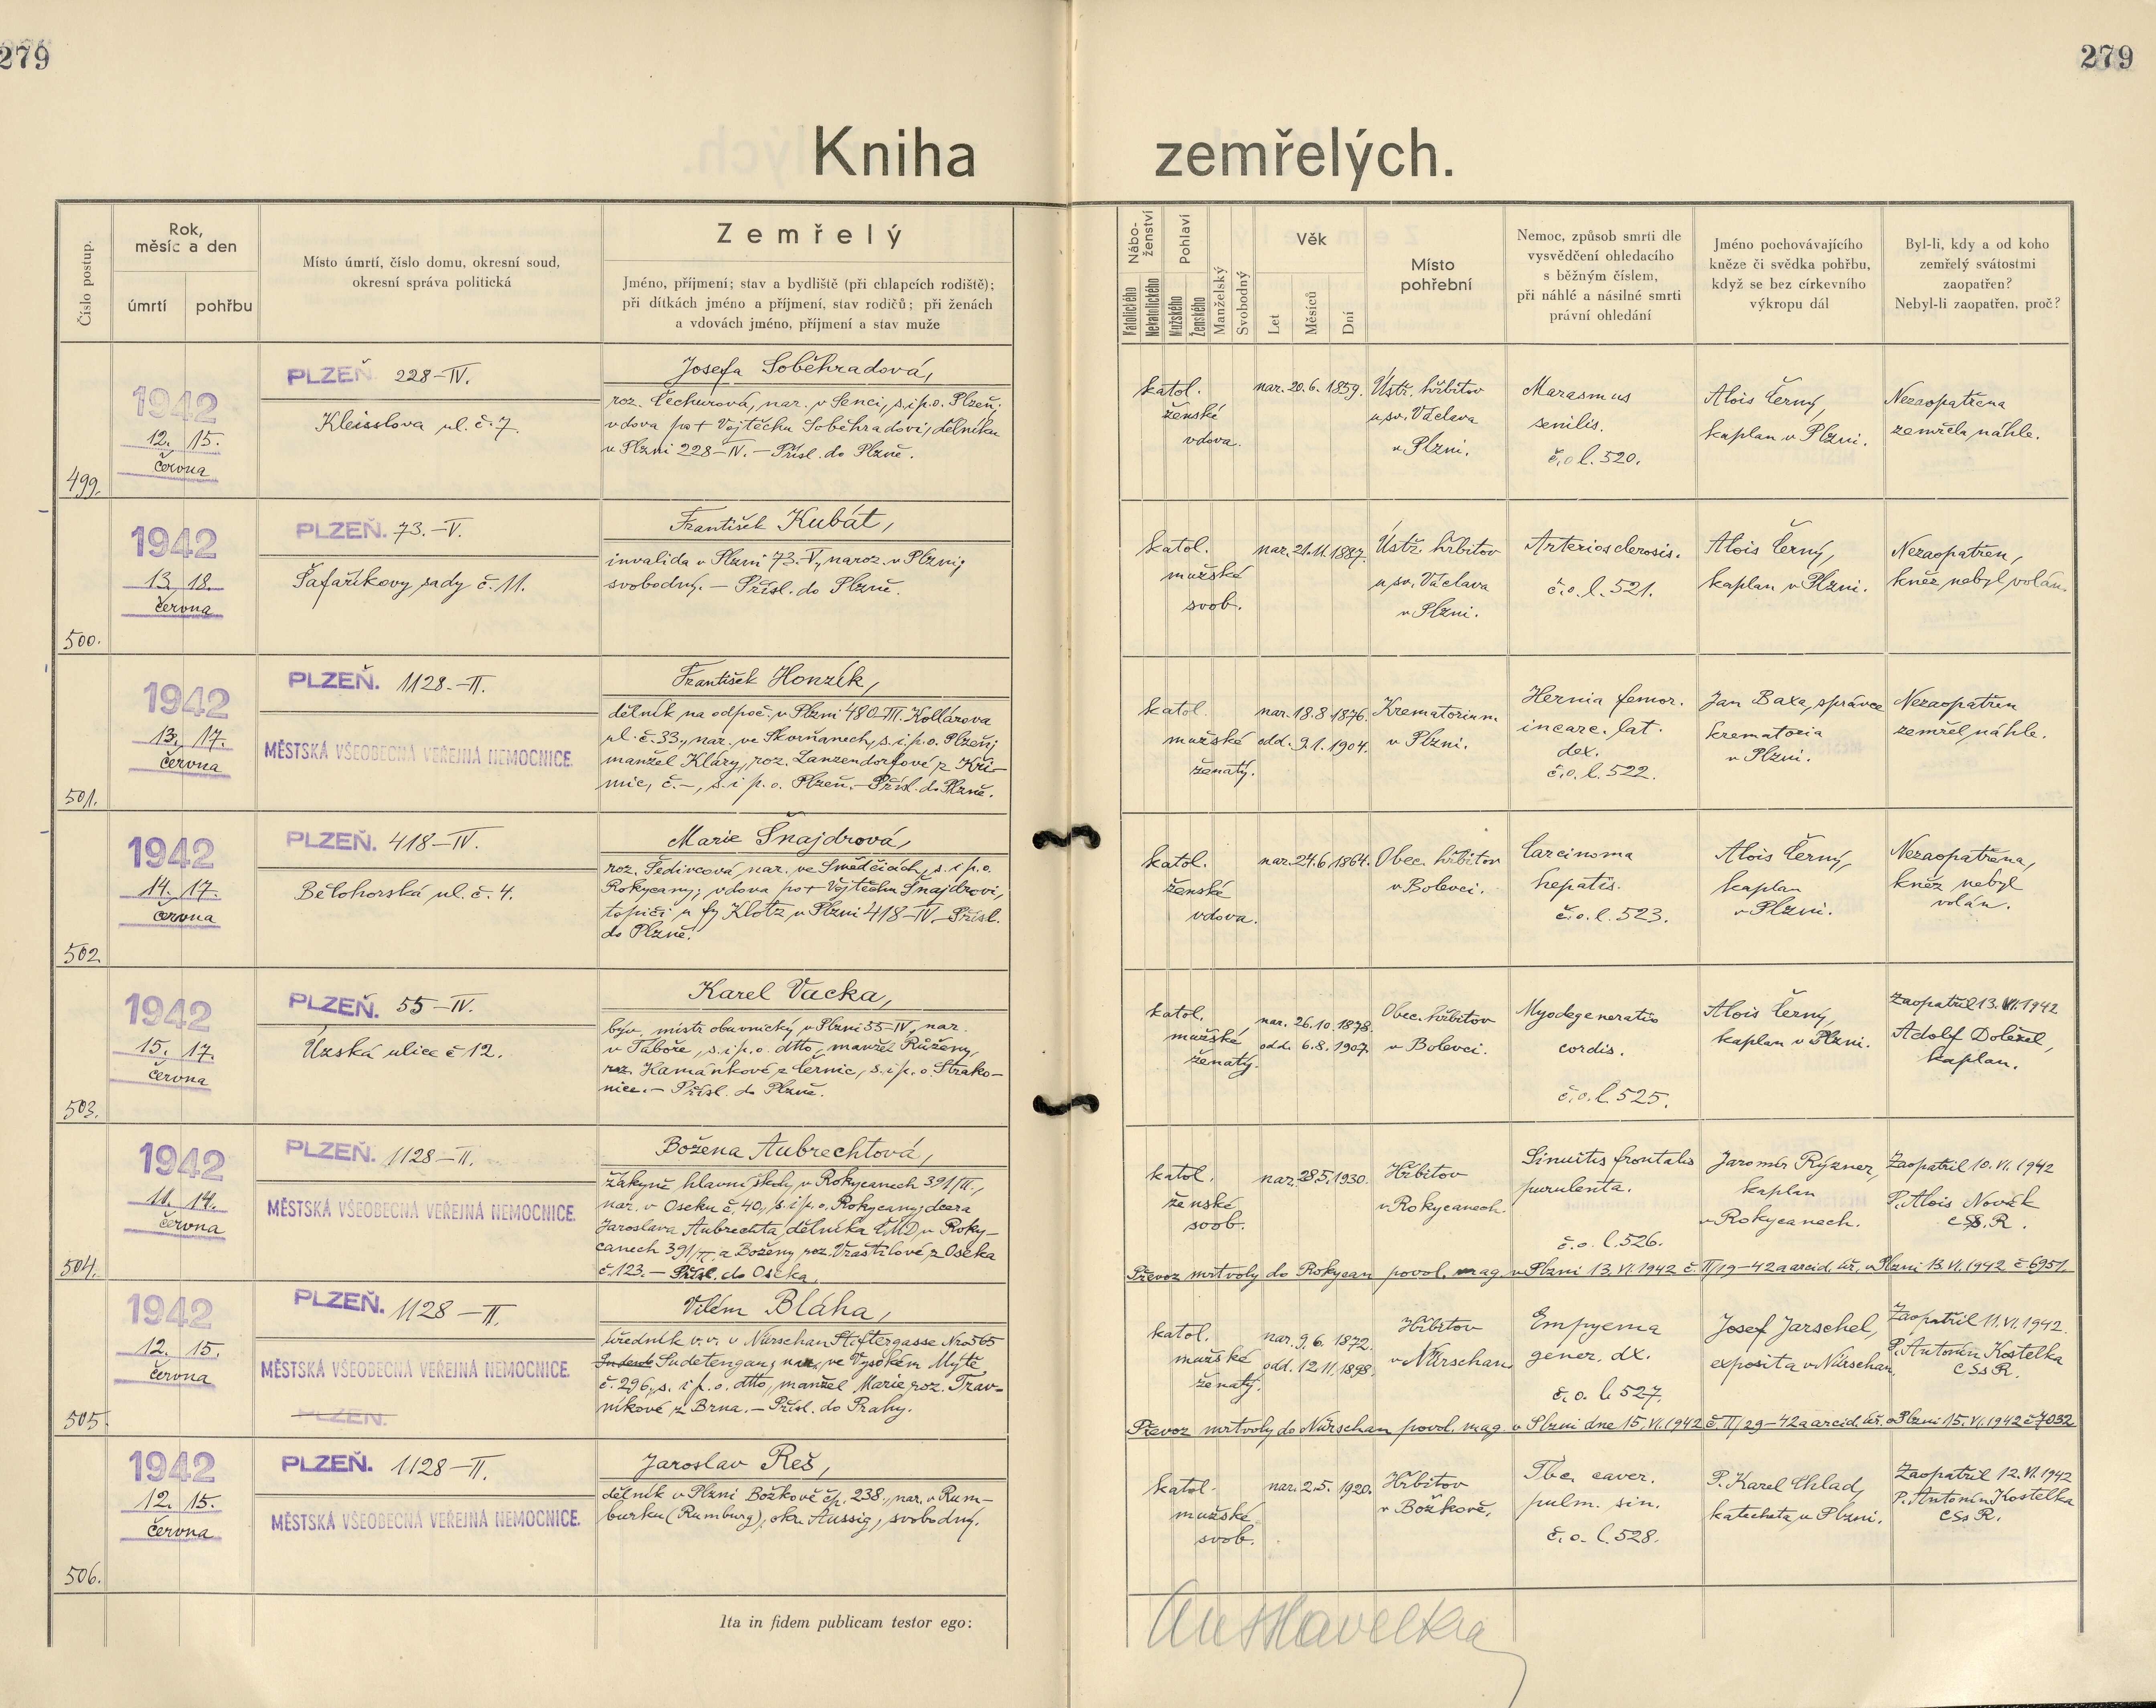 279
279
Kniha zemřelých.
Číslo postup.
Rok,
měsíc a den
úmrtí
pohřbu
Místo úmrtí, číslo domu, okresní soud,
okresní správa politická
Zemřelý
Jméno, příjmení; stav a bydliště (při chlapcích rodiště);
při dítkách jméno a příjmení, stav rodičů; při ženách
a vdovách jméno, příjmení a stav muže
Nábo-
ženství
Katolického
Nekatolického
Pohlaví
Mužského
Ženského
Manželský
Svobodný
Věk
Let
Měsíců
Dní
Místo
pohřební
Nemoc, způsob smrti dle
vysvědčení ohledacího
s běžným číslem,
při náhlé a násilné smrti
právní ohledání
Jméno pochovávajícího
kněze či svědka pohřbu,
když se bez církevního
výkropu dál
Byl-li, kdy a od koho
zemřelý svátostmi
zaopatřen?
Nebyl-li zaopatřen, proč?
499.
1942
12. 15.
června
PLZEŇ 228-IV.
Kleisslova ul. č. 7.
Josefa Soběhradová,
roz. Čechurová, nar. v Senci, s. i p. o. Plzeň;
vdova po † Vojtěchu Soběhradovi, dělníku
v Plzni 228-IV. – Přísl. do Plzně.
katol.
ženské
vdova.
nar. 20. 6. 1859.
Ústř. hřbitov
u sv. Václava
v Plzni.
Marasmus
senilis.
č. o. l. 520.
Alois Černý,
kaplan v Plzni.
Nezaopatřena
zemřela náhle.
500.
1942
13. 18.
června
PLZEŇ. 73.-V.
Šafaříkovy sady č. 11.
František Kubát,
invalida v Plzni 73.-V, naroz. v Plzni,
svobodný. – Přísl. do Plzně.
katol.
mužské
svob.
nar. 21. 11. 1887.
Ústř. hřbitov
u sv. Václava
v Plzni.
Arteriosclerosis.
č. o. l. 521.
Alois Černý,
kaplan v Plzni.
Nezaopatřen,
kněz nebyl volán.
501.
1942
13. 17.
června
PLZEŇ. 1128.-II.
MĚSTSKÁ VŠEOBECNÁ VEŘEJNÁ NEMOCNICE.
František Honzík,
dělník na odpoč. v Plzni 480-III. Kollárova
ul. č. 33., nar. ve Skvrňanech, s. i p. o. Plzeň;
manžel Kláry, roz. Lanzendorfové z Kři-
mic, č. –, s. i p. o. Plzeň. – Přísl. do Plzně.
katol.
mužské
ženatý.
nar. 18. 8. 1876.
odd. 9. 1. 1904.
Krematorium
v Plzni.
Hernia femor.
incarc. lat.
dex.
č. o. l. 522.
Jan Baxa, správce
krematoria
v Plzni.
Nezaopatřen
zemřel náhle.
502.
1942
14. 17.
června
PLZEŇ. 418-IV.
Bělohorská ul. č. 4.
Marie Šnajdrová,
roz. Šedivcová, nar. ve Smědčicích, s. i p. o.
Rokycany; vdova po † Vojtěchu Šnajdrovi,
topiči u fy Klotz v Plzni 418-IV. – Přísl.
do Plzně.
katol.
ženské
vdova.
nar. 24. 6. 1864.
Obec. hřbitov
v Bolevci.
Carcinoma
hepatis.
č. o. l. 523.
Alois Černý,
kaplan
v Plzni.
Nezaopatřena,
kněz nebyl
volán.
503.
1942
15. 17.
června
PLZEŇ. 55-IV.
Úzská ulice č. 12.
Karel Vacka,
býv. mistr obuvnický v Plzni 55-IV, nar.
v Táboře, s. i p. o. dtto, manžel Růženy,
roz. Hamánkové z Černic, s. i p. o. Strako-
nice. – Přísl. do Plzně.
katol.
mužské
ženatý.
nar. 26. 10. 1878.
odd. 6. 8. 1907.
Obec. hřbitov
v Bolevci.
Myodegeneratio
cordis.
č. o. l. 525.
Alois Černý,
kaplan v Plzni.
Zaopatřil 13. VI. 1942
Adolf Doležel,
kaplan.
504.
1942
11. 14.
června
PLZEŇ. 1128-II.
MĚSTSKÁ VŠEOBECNÁ VEŘEJNÁ NEMOCNICE.
Božena Aubrechtová,
žákyně hlavní školy v Rokycanech 391/II.,
nar. v Oseku č. 40, s. i p. o. Rokycany; dcera
Jaroslava Aubrechta, dělníka ČMD v Roky-
canech 391/II. a Boženy roz. Vraštilové z Oseka
č. 123. – Přísl. do Oseka.
katol.
ženské
svob.
nar. 28. 5. 1930.
Hřbitov
v Rokycanech.
Sinuitis frontalis
purulenta.
č. o. l. 526.
Jaromír Rýzner,
kaplan
v Rokycanech.
Zaopatřil 10. VI. 1942
P. Alois Novák
CSS. R.
Převoz mrtvoly do Rokycan povol. mag. v Plzni 13. VI. 1942 č. II/19-42 a arcid. úř. v Plzni 13. VI. 1942 č. 6951.
505.
1942
12. 15.
června
PLZEŇ. 1128-II.
MĚSTSKÁ VŠEOBECNÁ VEŘEJNÁ NEMOCNICE.
PLZEŇ.
Vilém Bláha,
úředník v. v. v Nürschan Stiftergasse No 565
Sudetengau; nar. ve Vysokém Mýtě
č. 296, s. i p. o. dtto, manžel Marie, roz. Tráv-
níkové z Brna. – Přísl. do Prahy.
katol.
mužské
ženatý.
nar. 9. 6. 1872.
odd. 12. 11. 1898.
Hřbitov
v Nürschan
Empyema
gener. dx.
č. o. l. 527.
Josef Jarschel,
exposita v Nürschan.
Zaopatřil 11. VI. 1942.
P. Antonín Kostelka
CSsR.
Převoz mrtvoly do Nürschan povol. mag. v Plzni dne 15. VI. 1942 č. II/29-42 a arcid. úř. v Plzni 15. VI. 1942 č. 7032
506.
1942
12. 15.
června
PLZEŇ. 1128-II.
MĚSTSKÁ VŠEOBECNÁ VEŘEJNÁ NEMOCNICE.
Jaroslav Reš,
dělník v Plzni Božkově čp. 238., nar. v Rum-
burku (Rumburg), okr. Aussig, svobodný.
katol.
mužské
svob.
nar. 2. 5. 1920.
Hřbitov
v Božkově.
Tbc. caver.
pulm. sin.
č. o. l. 528.
P. Karel Chlad,
katecheta v Plzni.
Zaopatřil 12. VI. 1942
P. Antonín Kostelka
CSsR.
Ita in fidem publicam testor ego: